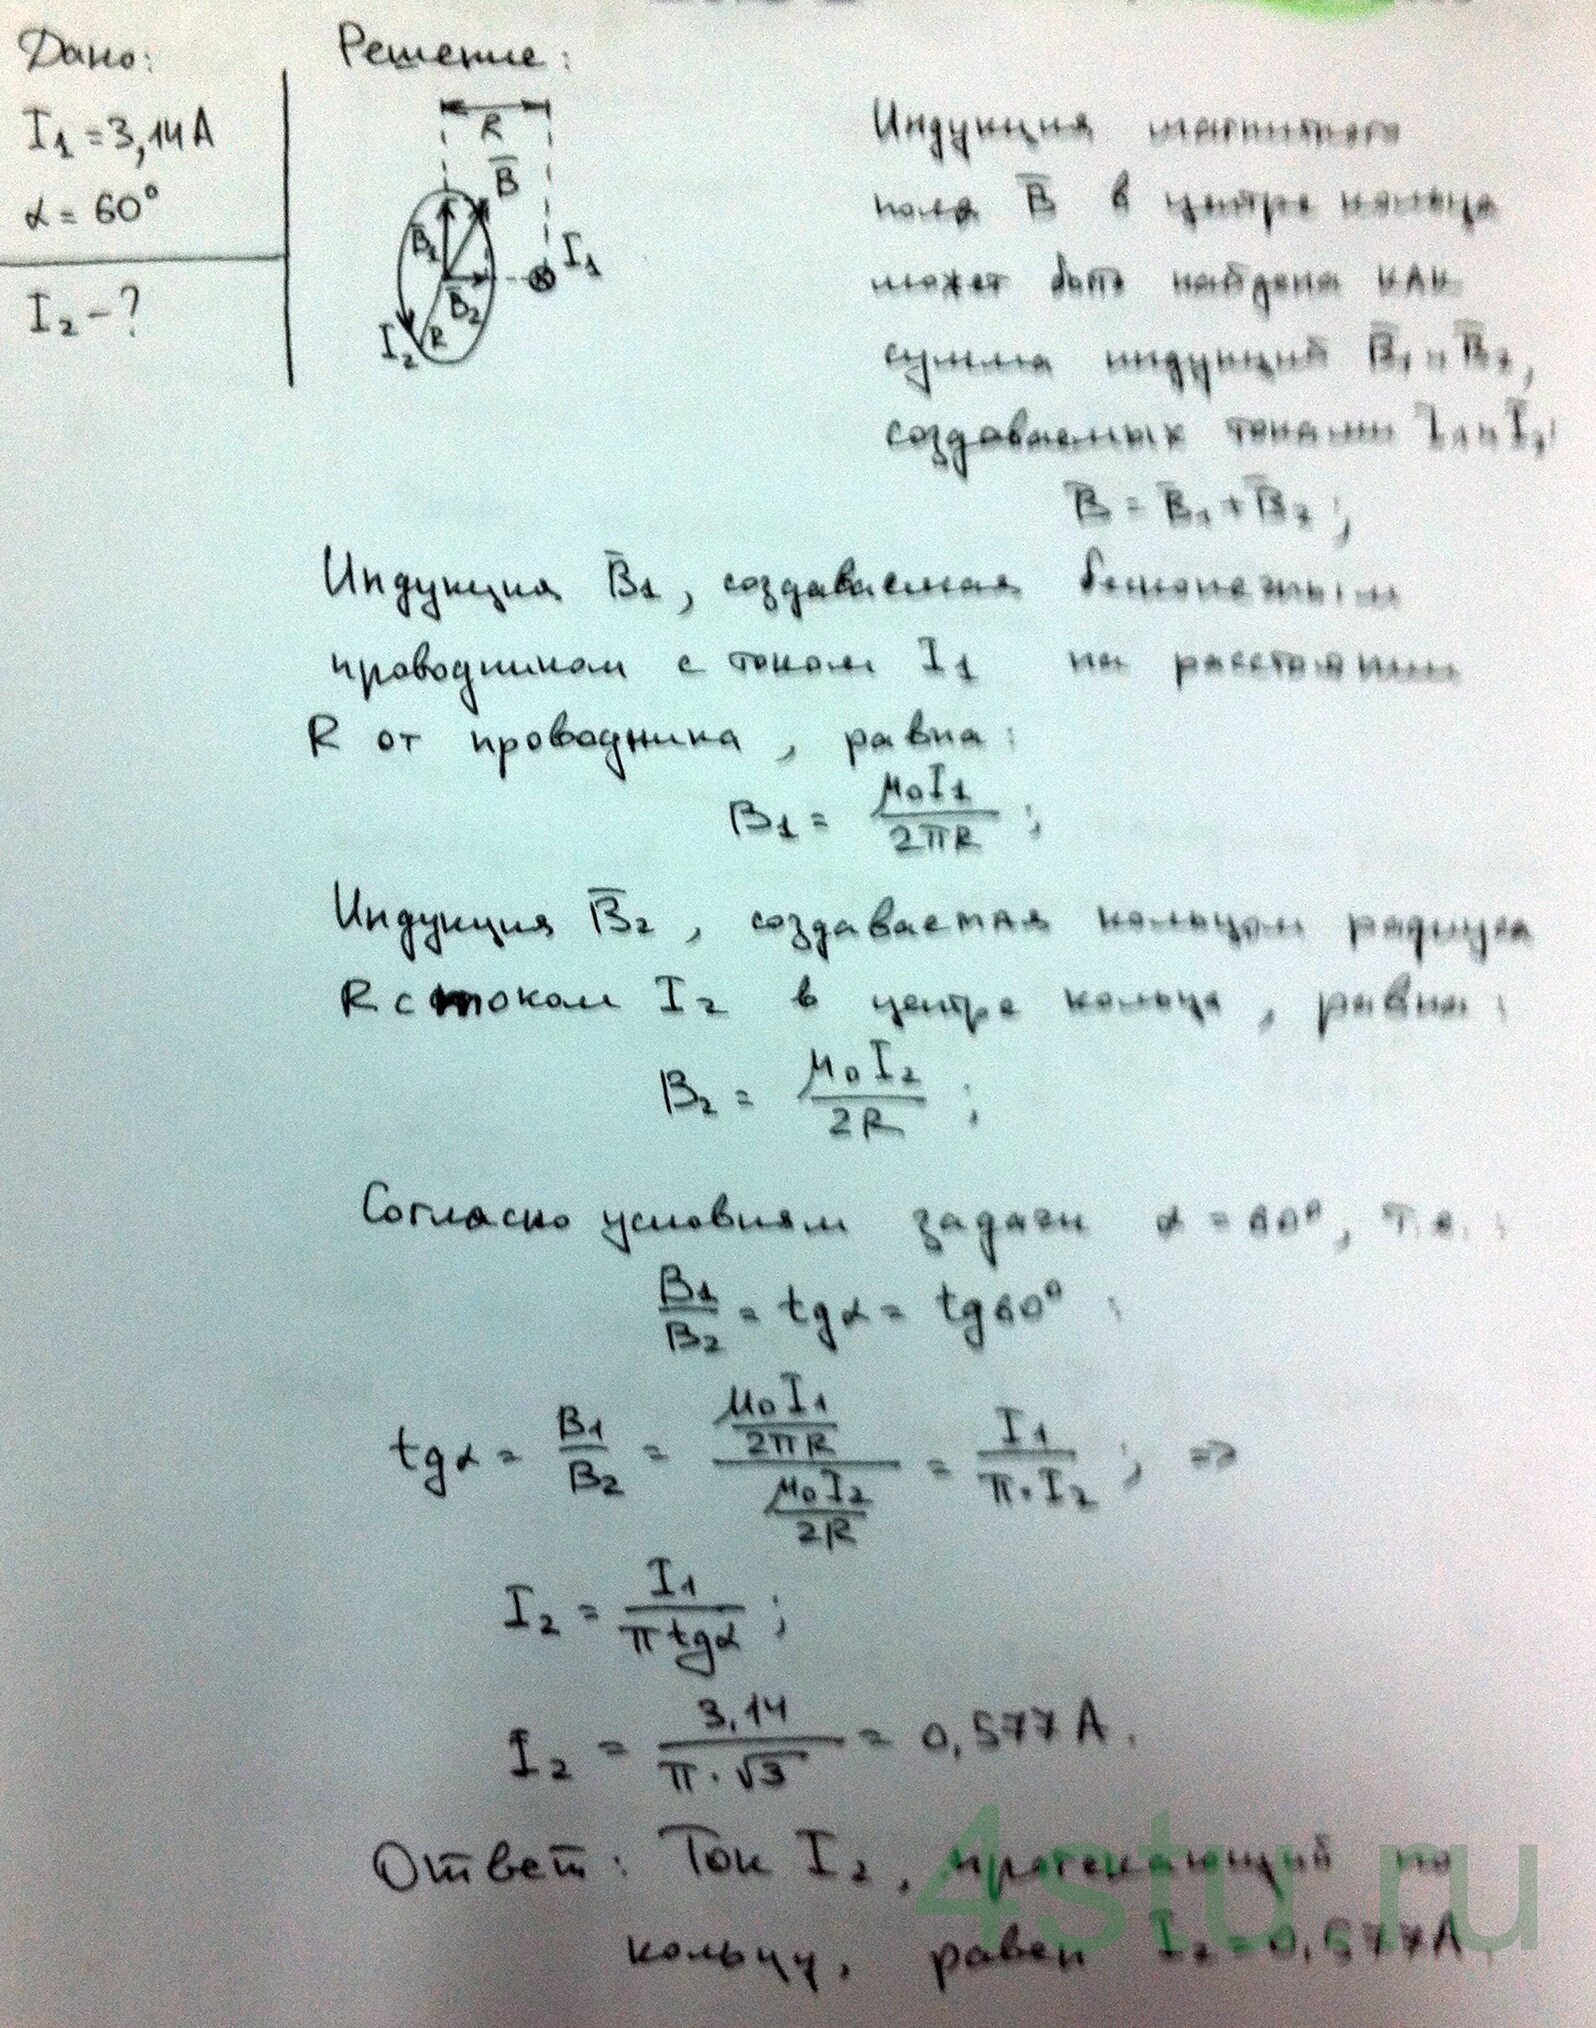 Дано:
I₁ = 3,14 А
α = 60°
I₂ - ?
Решение:
R
B̅
B̅₁
B̅₂
I₁
I₂
R
Индукция магнитного
поля B̅ в центре кольца
может быть найдена как
сумма индукций B̅₁ и B̅₂,
создаваемых токами I₁ и I₂:
B̅ = B̅₁ + B̅₂ ;
Индукция B̅₁, создаваемая бесконечным
проводником с током I₁ на расстоянии
R от проводника, равна:
B₁ = μ₀I₁ / 2πR ;
Индукция B̅₂, создаваемая кольцом радиуса
R с током I₂ в центре кольца, равна:
B₂ = μ₀I₂ / 2R ;
Согласно условиям задачи α = 60°, т.е. :
B₁/B₂ = tgα = tg60° :
tgα = B₁/B₂ = (μ₀I₁/2πR) / (μ₀I₂/2R) = I₁/(π·I₂) ; ⇒
I₂ = I₁/(π tgα) ;
I₂ = 3,14/(π·√3) = 0,577 А.
Ответ: Ток I₂, протекающий по
кольцу, равен I₂ = 0,577 А.
4stu.ru